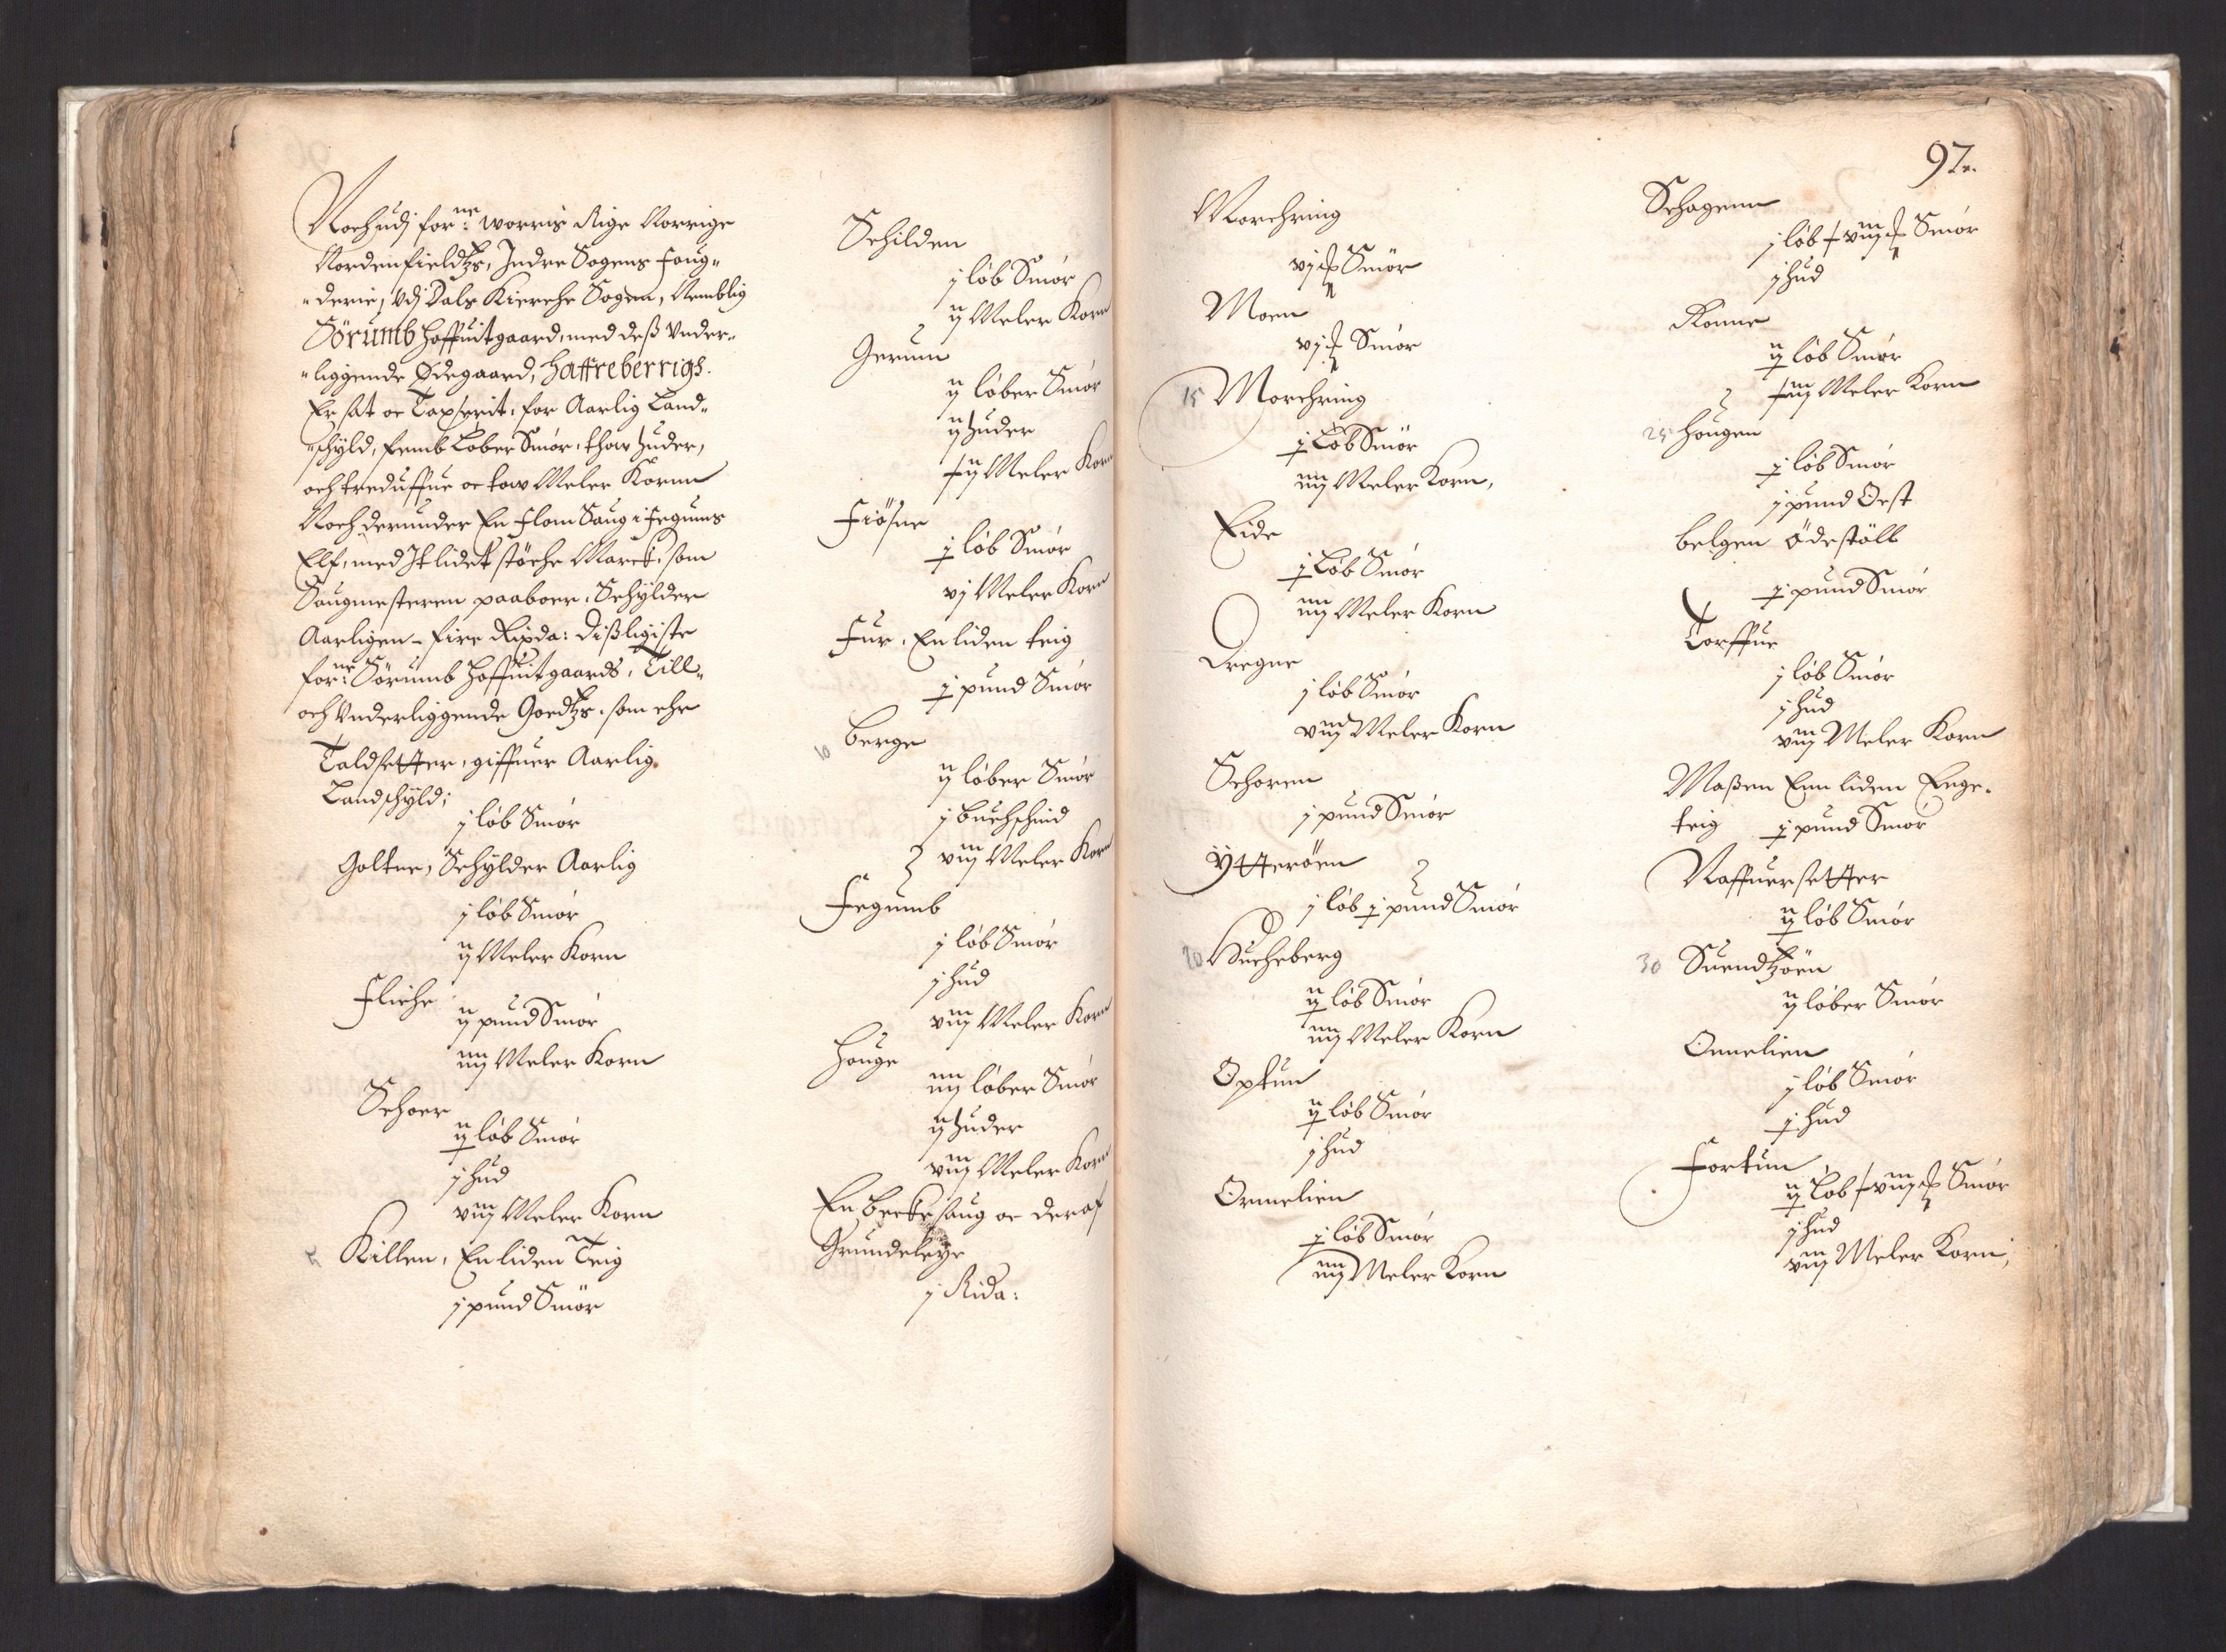 Noch udj for:ne worris Rige Norrige
Nordenfieldtzs, Indre Sogens foug„
„derie, Udj Dals Kierche Sogen, Nemblig
Sörumb Hoffuitgaard, med deß Under„
„liggende Ödegaard, Haffreberrigs.
Er sat oc Taxserit, for Aarlig Land„
„schyld, femb Löber Smör, thow Huder,
och treduffue oc tow Meler Kornn
Noch derunder En Flom Saug i Fegums
Elf, med It lidet stöche March, som
Saugmesteren paaboer, Schylder
Aarligen - fire Rixda: Dißligiste
for:ne Sörumb Hoffuitgaards, Till„
och Underliggende Goedtzs, som ehr
Taldsetter, giffuer Aarlig
Landschyld;
j löb Smör
Goltne, Schylder Aarlig
j löb Smör
ij Meler Korn
Fliche
ij pund Smör
iiij Meler Korn
Schoer
ij löb Smör
j Hud
viij Meler Korn
Killen, En liden Teig
j pund Smör
Schilden
j löb Smör
ij Meler Korn
Gerum
ij löber Smör
ij Huder
xij Meler Korn
Fiösne
j löb Smör
vj Meler Korn
Fur, En liden teig
j pund Smör
10 Berge
ij löber Smör
j Buchschind
viij Meler Korn
Fegumb
j löb Smör
j Hud
viij Meler Korn
Houge
iiij löber Smör
ij Huder
viij Meler Korn
En Beckesaug oc deraf
Grundeleye
j Rida:
97.
Morchring
vj Smör
Moen
vj Smör
15 Morchring
j Löb Smör
iiij Meler Korn,
Eide
j Löb Smör
iiij Meler Korn
Dregne
j löb Smör
viij Meler Korn
Schoren
j pund Smör
Ytteröen
j löb j pund Smör
20 Sucheberg
ij löb Smör
iiij Meler Korn
Optun
ij löb Smör
j Hud
Ormelien
j löb Smör
iiij Meler Korn
Schagenn
j löb xviij Smör
j Hud
Ronne
ij löb Smör
xiij Meler Korn
25 Hougen
j löb Smör
j pund Oest
Belgen Ödeställ
j pund Smör
Torffue
j löb Smör
j Hud
viij Meler Korn
Maßen Enn liden Enge„
teig j pund Smör
Naffuersetter
ij löb Smör
30 Suendtzöen
ij löber Smör
Ormelien
j löb Smör
j Hud
Fortun
ij Löb xviij Smör
j Hud
viij Meler Korn,